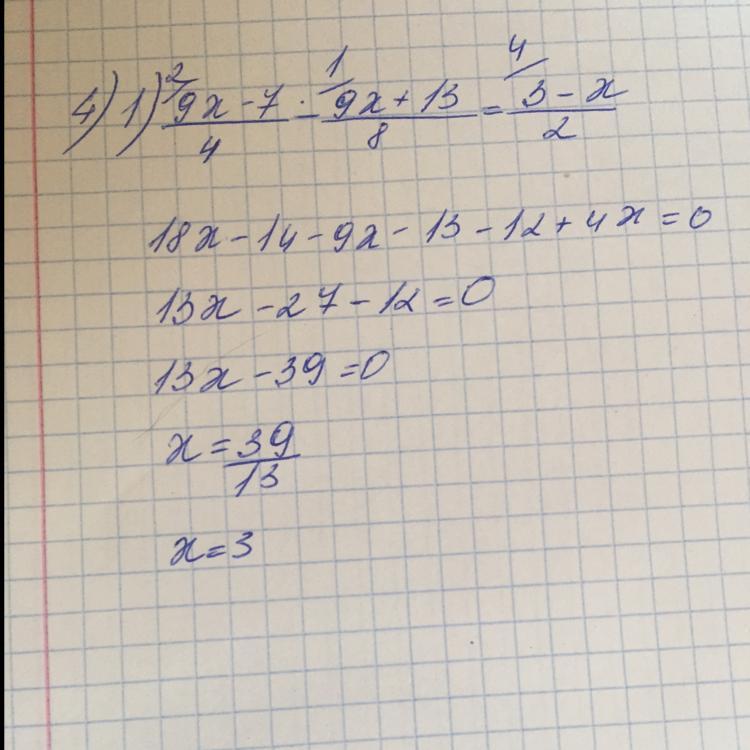 4) 1) ²/9x-7/4 - ¹/9x+13/8 = ⁴/3-x/2
18x-14-9x-13-12+4x=0
13x-27-12=0
13x-39=0
x=39/13
x=3